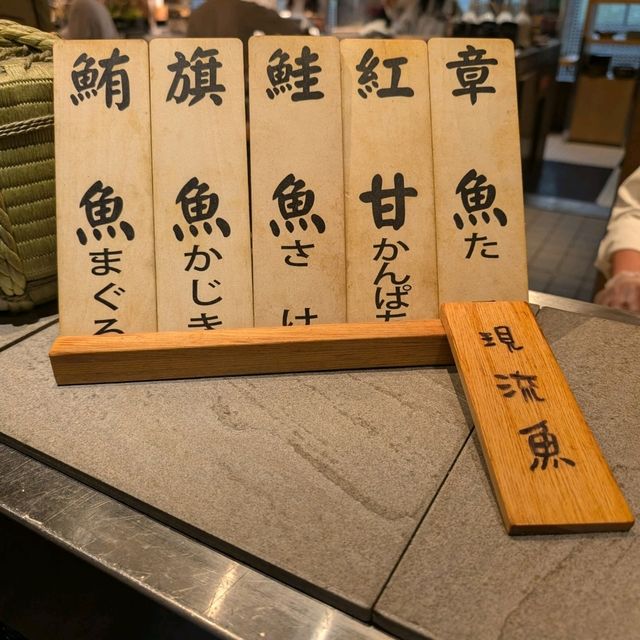 鮪魚まぐろ
旗魚かじき
鮭魚さけ
紅甘かんぱち
章魚た
現流魚